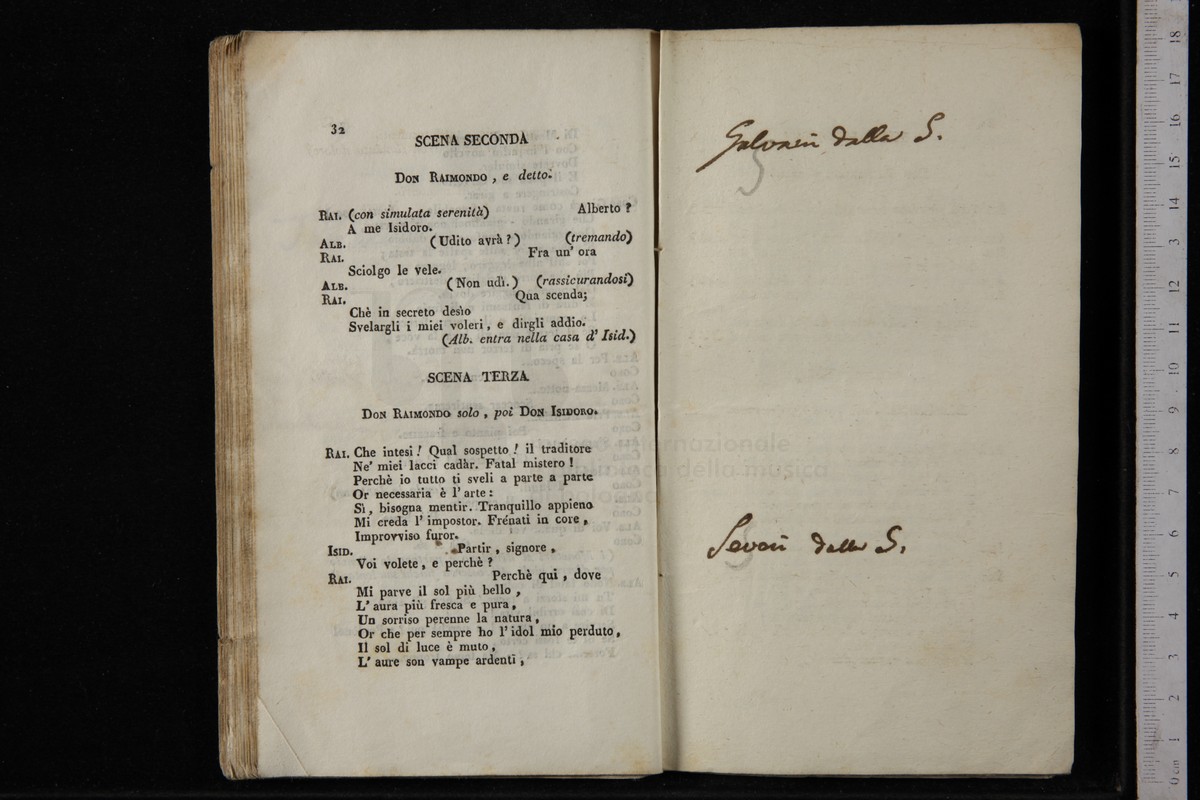 32
SCENA SECONDA
DON RAIMONDO, e detto.
RAI. (con simulata serenità) Alberto?
A me Isidoro.
ALB. (Udito avrà?) (tremando)
RAI. Fra un' ora
Sciolgo le vele.
ALB. (Non udì.) (rassicurandosi)
RAI. Qua scenda;
Chè in secreto desìo
Svelargli i miei voleri, e dirgli addio.
(Alb. entra nella casa d' Isid.)
SCENA TERZA
DON RAIMONDO solo, poi DON ISIDORO.
RAI. Che intesi! Qual sospetto! il traditore
Ne' miei lacci cadàr. Fatal mistero!
Perchè io tutto ti sveli a parte a parte
Or necessaria è l' arte:
Sì, bisogna mentir. Tranquillo appieno
Mi creda l' impostor. Frénati in core,
Improvviso furor.
ISID. Partir, signore,
Voi volete, e perchè?
RAI. Perchè qui, dove
Mi parve il sol più bello,
L' aura più fresca e pura,
Un sorriso perenne la natura,
Or che per sempre ho l' idol mio perduto,
Il sol di luce è muto,
L' aure son vampe ardenti,
dalla S.
Severi dalla S.
internazionale
biblioteca della musica
0 cm 1 2 3 4 5 6 7 8 9 10 11 12 13 14 15 16 17 18